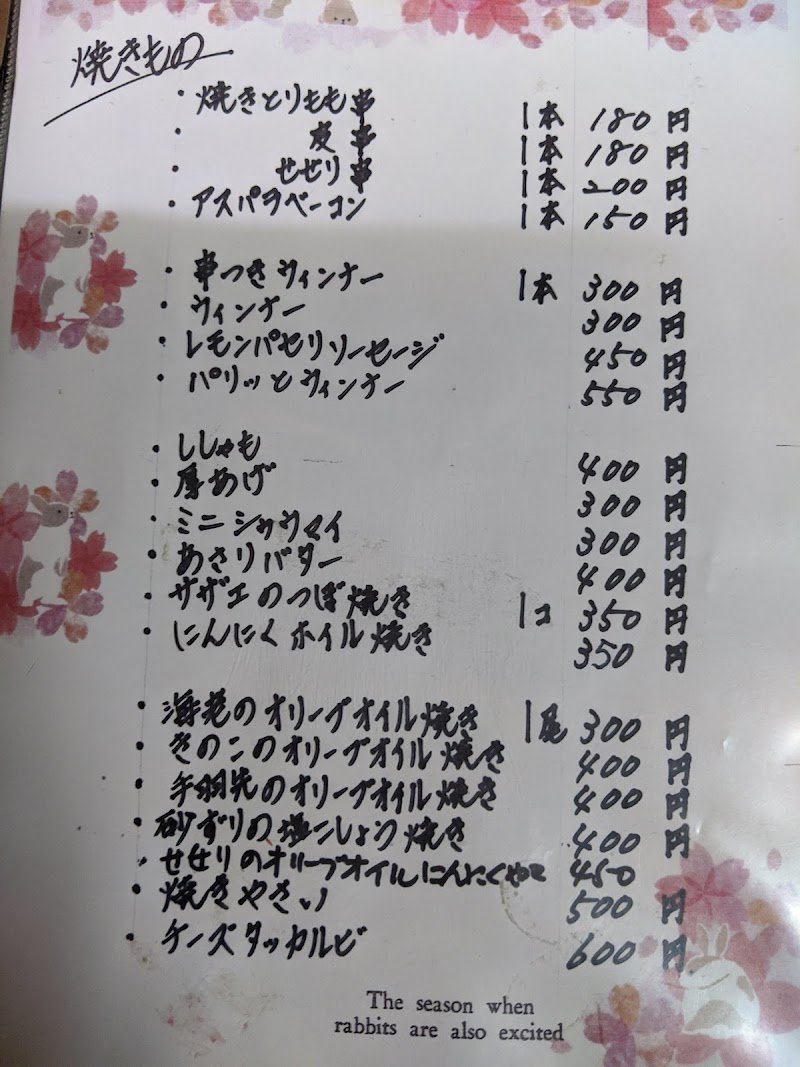 焼きもの
・焼きとりもも串 1本 180円
・皮串 1本 180円
・せせり串 1本 200円
・アスパラベーコン 1本 150円
・串つきウィンナー 1本 300円
・ウィンナー 300円
・レモンパセリソーセージ 450円
・パリッとウィンナー 550円
・ししゃも 400円
・厚あげ 300円
・ミニシュウマイ 300円
・あさりバター 400円
・サザエのつぼ焼き 1コ 350円
・にんにくホイル焼き 350円
・海老のオリーブオイル焼き 1尾 300円
・きのこのオリーブオイル焼き 400円
・手羽先のオリーブオイル焼き 400円
・砂ずりの塩こしょう焼き 400円
・せせりのオリーブオイルにんにくやき 450
・焼きやさい 500円
・チーズタッカルビ 600円
The season when
rabbits are also excited